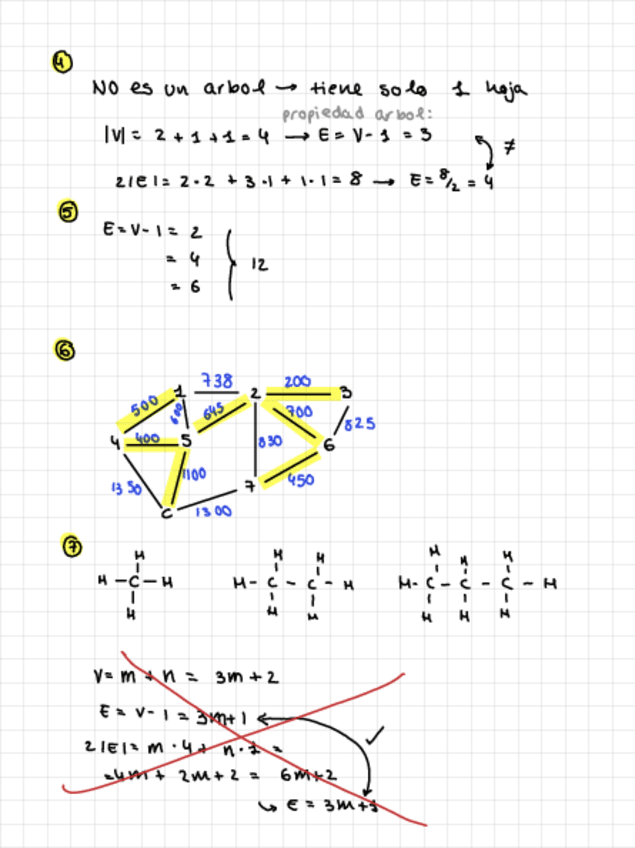 4
NO es un arbol → tiene solo 1 hoja
propiedad arbol:
|V| = 2 + 1 + 1 = 4 → E = V - 1 = 3
≠
2|E| = 2·2 + 3·1 + 1·1 = 8 → E = 8/2 = 4
5
E = V - 1 = 2
= 4
= 6
12
6
1 738 2 200 3
500 600 645 700 825
4 400 5 830 6
1350 1100 7 450
C 1300
7
H H H H H H
H - C - H H - C - C - H H - C - C - C - H
H H H H H H
V = m + n = 3m + 2
E = V - 1 = 3m + 1
2|E| = m · 4 + n · 1 =
= 4m + 2m + 2 = 6m + 2
↳ E = 3m + 1